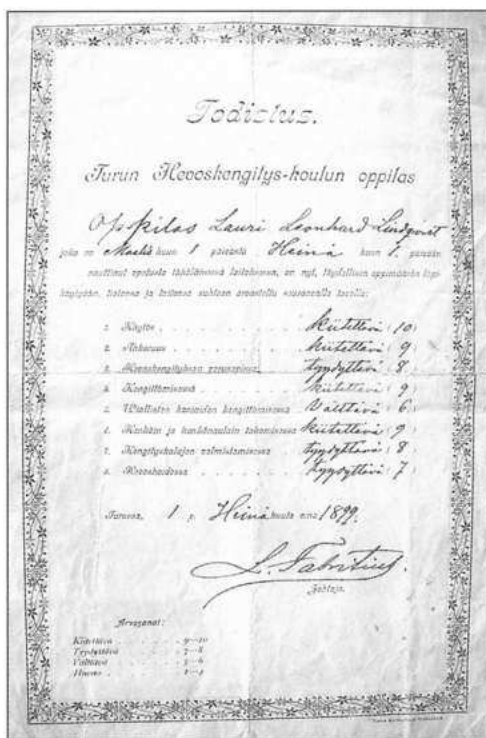 Todistus.
Turun Hevoskengitys-koulun oppilas
Oppilas Lauri Leonhard Lindqvist
joka on Maalis kuun 1 päivästä Heinä kuun 1. päivään
nauttinut opetusta tässä laitoksessa, on nyt, täydellisen oppimäärän läpi
käytyään, taitonsa ja tietonsa suhteen arvosteltu seuraavalla tavalla:
1. Käytös kiitettävä (10)
2. Ahkeruus kiitettävä (9)
3. Hevoskengityksen tyydyttävä (8)
4. Kengittämisessä kiitettävä (9)
5. Viallisten kavioiden kengittämisessä Välttävä (6)
6. Kenkäin ja kenkänaulain takomisessa kiitettävä (9)
7. Kengityskalujen valmistamisessa tyydyttävä (8)
8. Hevoshoidossa tyydyttävä (7)
Turussa, 1 p. Heinä kuuta v:na 1899.
L. Fabritius.
Johtaja.
Arvosanat:
Kiitettävä 9—10
Tyydyttävä 7—8
Välttävä 5—6
Huono 1—4